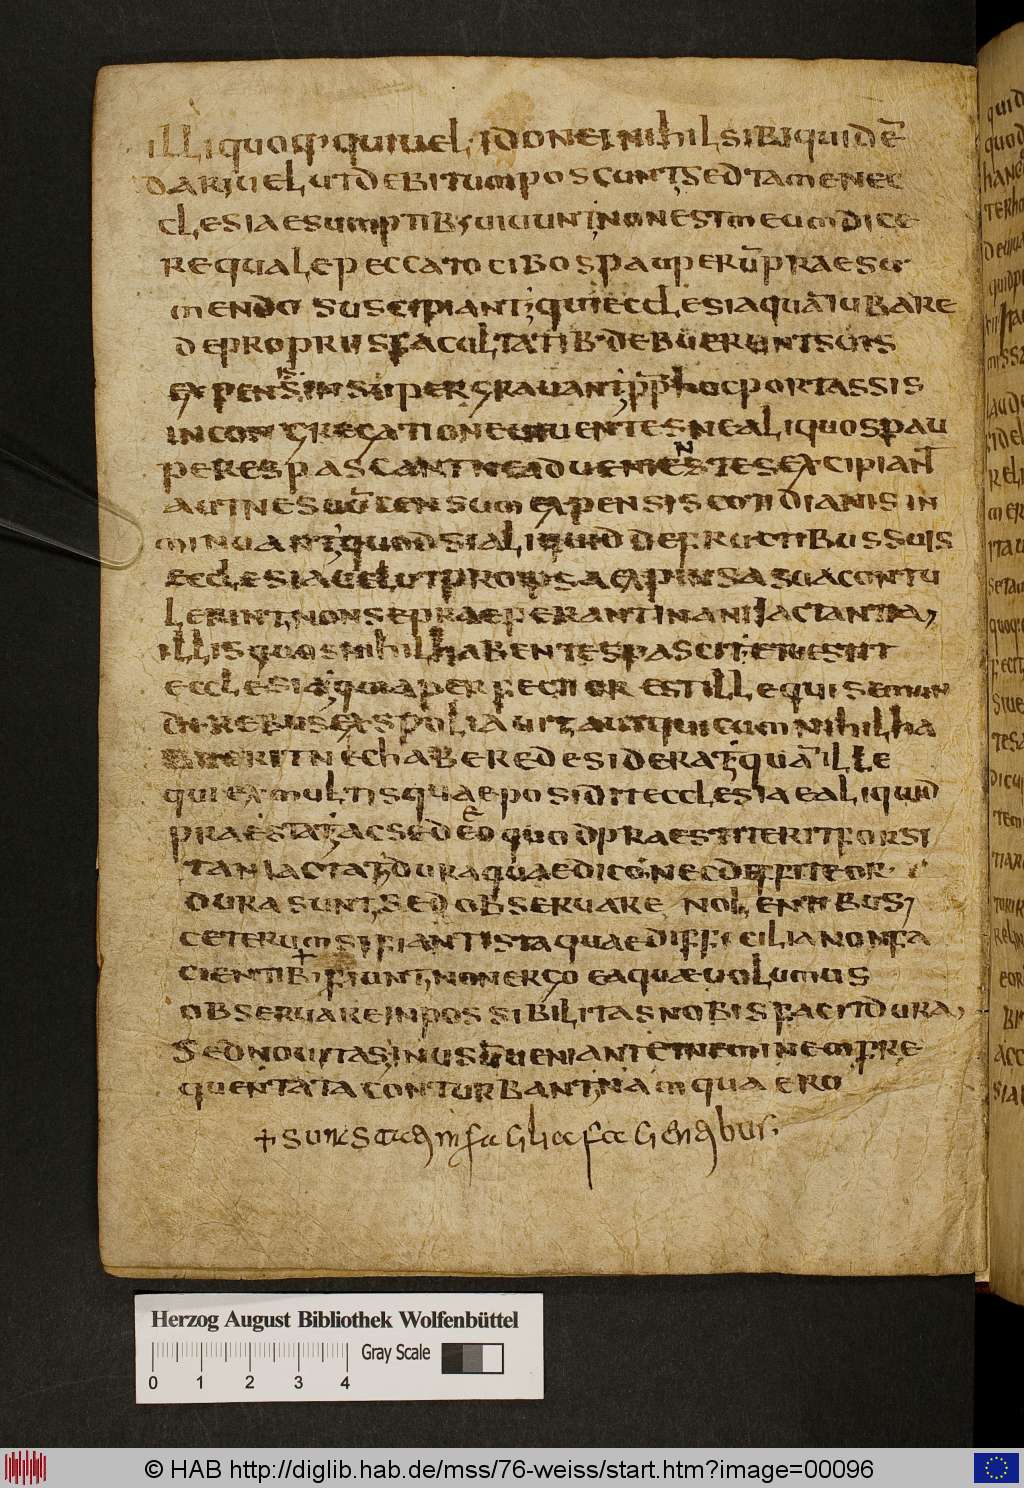 illi quoq· qui uel idonei nihil sibi quidē
dari uelut debitum poscunt sed tamen ec
clesiae sumptib; uiuunt, non est meum dice
re quale peccato cibos pauperū praesu
mendo suscipiant; qui ecclesia quā iubare
de propriis facultatib· debuerunt suis
expensis insuper grauant; ppr hoc portassis
in congregatione uiuentes ne aliquos pau
peres pascant ne aduenientes excipiant
aut ne suū censum expensis cotidianis in
minuant; quod si aliquid de fructibus suis
ecclesia uelut propria expensa sua contu
lerint, non se praeferant inani iactantia,
illis quos nihil habentes pascit et uestit
ecclesia; quia perfectior est ille qui se mun
di rebus expoliauit aut qui cum nihil ha
buerit nec habere desiderat; quā ille
qui ex multis quae posidit ecclesiae aliquid
praestat; ac se de eo quod praestiterit forsi
tan iactat; dura quae dico nec diffiteor·
dura sunt, sed obseruare nolentibus;
ceterum si fiant ista quae difficilia non fa
cientib; fiunt, non ergo ea quae uolumus
obseruare inpossibilitas nobis facit dura,
sed nouitas inusū ueniant et nemine mfre
quentata conturbant; nam qua ero
quid
quod
Herzog August Bibliothek Wolfenbüttel
Gray Scale
0 1 2 3 4
© HAB http://diglib.hab.de/mss/76-weiss/start.htm?image=00096